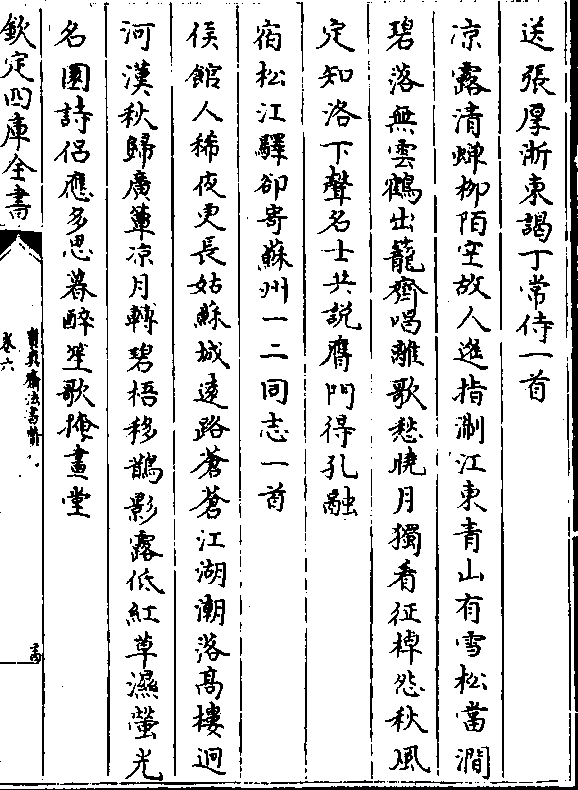 送張厚浙東謁丁常侍一首
凉露清蟬柳陌空故人遥指淛江東青山有雪松當澗
碧落無雲鶴出籠齊唱離歌愁曉月獨看征棹怨秋風
定知洛下聲名士共説膺門得孔融
宿松江驛卻寄蘇州一二同志一首
侯館人稀夜更長姑蘇城遠路蒼蒼江湖潮落高樓迥
河漢秋歸廣簟凉月轉碧梧移鵲影露低紅草濕螢光
名園詩侣應多思暮醉笙歌掩畫堂
欽定四庫全書
寳真齋法書贊
卷六